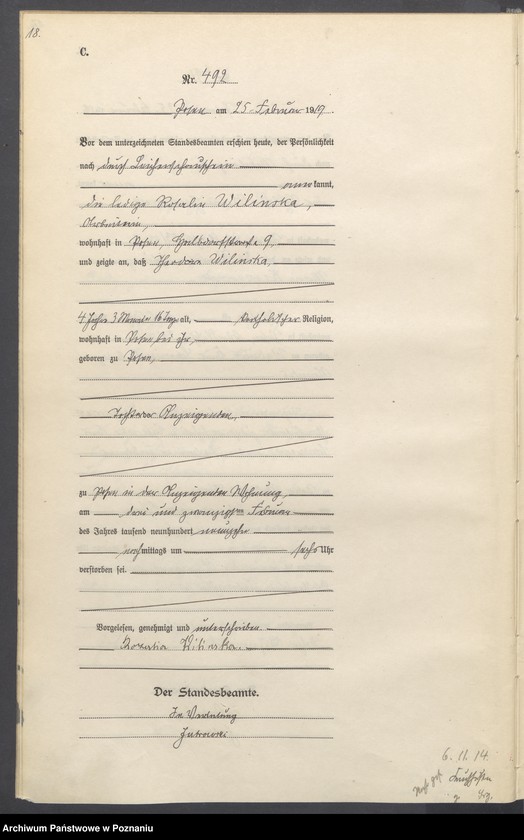 18.
C.
Nr. 492
Posen am 25 Februar 1919.
Vor dem unterzeichneten Standesbeamten erschien heute, der Persönlichkeit
nach durch Leichenschauschein
anerkannt,
die ledige Rosalie Wilinska,
Arbeiterin,
wohnhaft in Posen, 9,
und zeigte an, daß Theodora Wilinska,
4 Jahre 3 Monate 16 Tage alt, katholischer Religion,
wohnhaft in Posen, bei ihr,
geboren zu Posen,
Tochter der Anzeigenden,
zu Posen in der Anzeigenden Wohnung,
am drei und zwanzigsten Februar
des Jahres tausend neunhundert neunzehn
nachmittags um sechs Uhr
verstorben sei.
Vorgelesen, genehmigt und unterschrieben.
Rozalia Wilinska.
Der Standesbeamte.
In Vertretung
6. 11. 14.
Archiwum Państwowe w Poznaniu